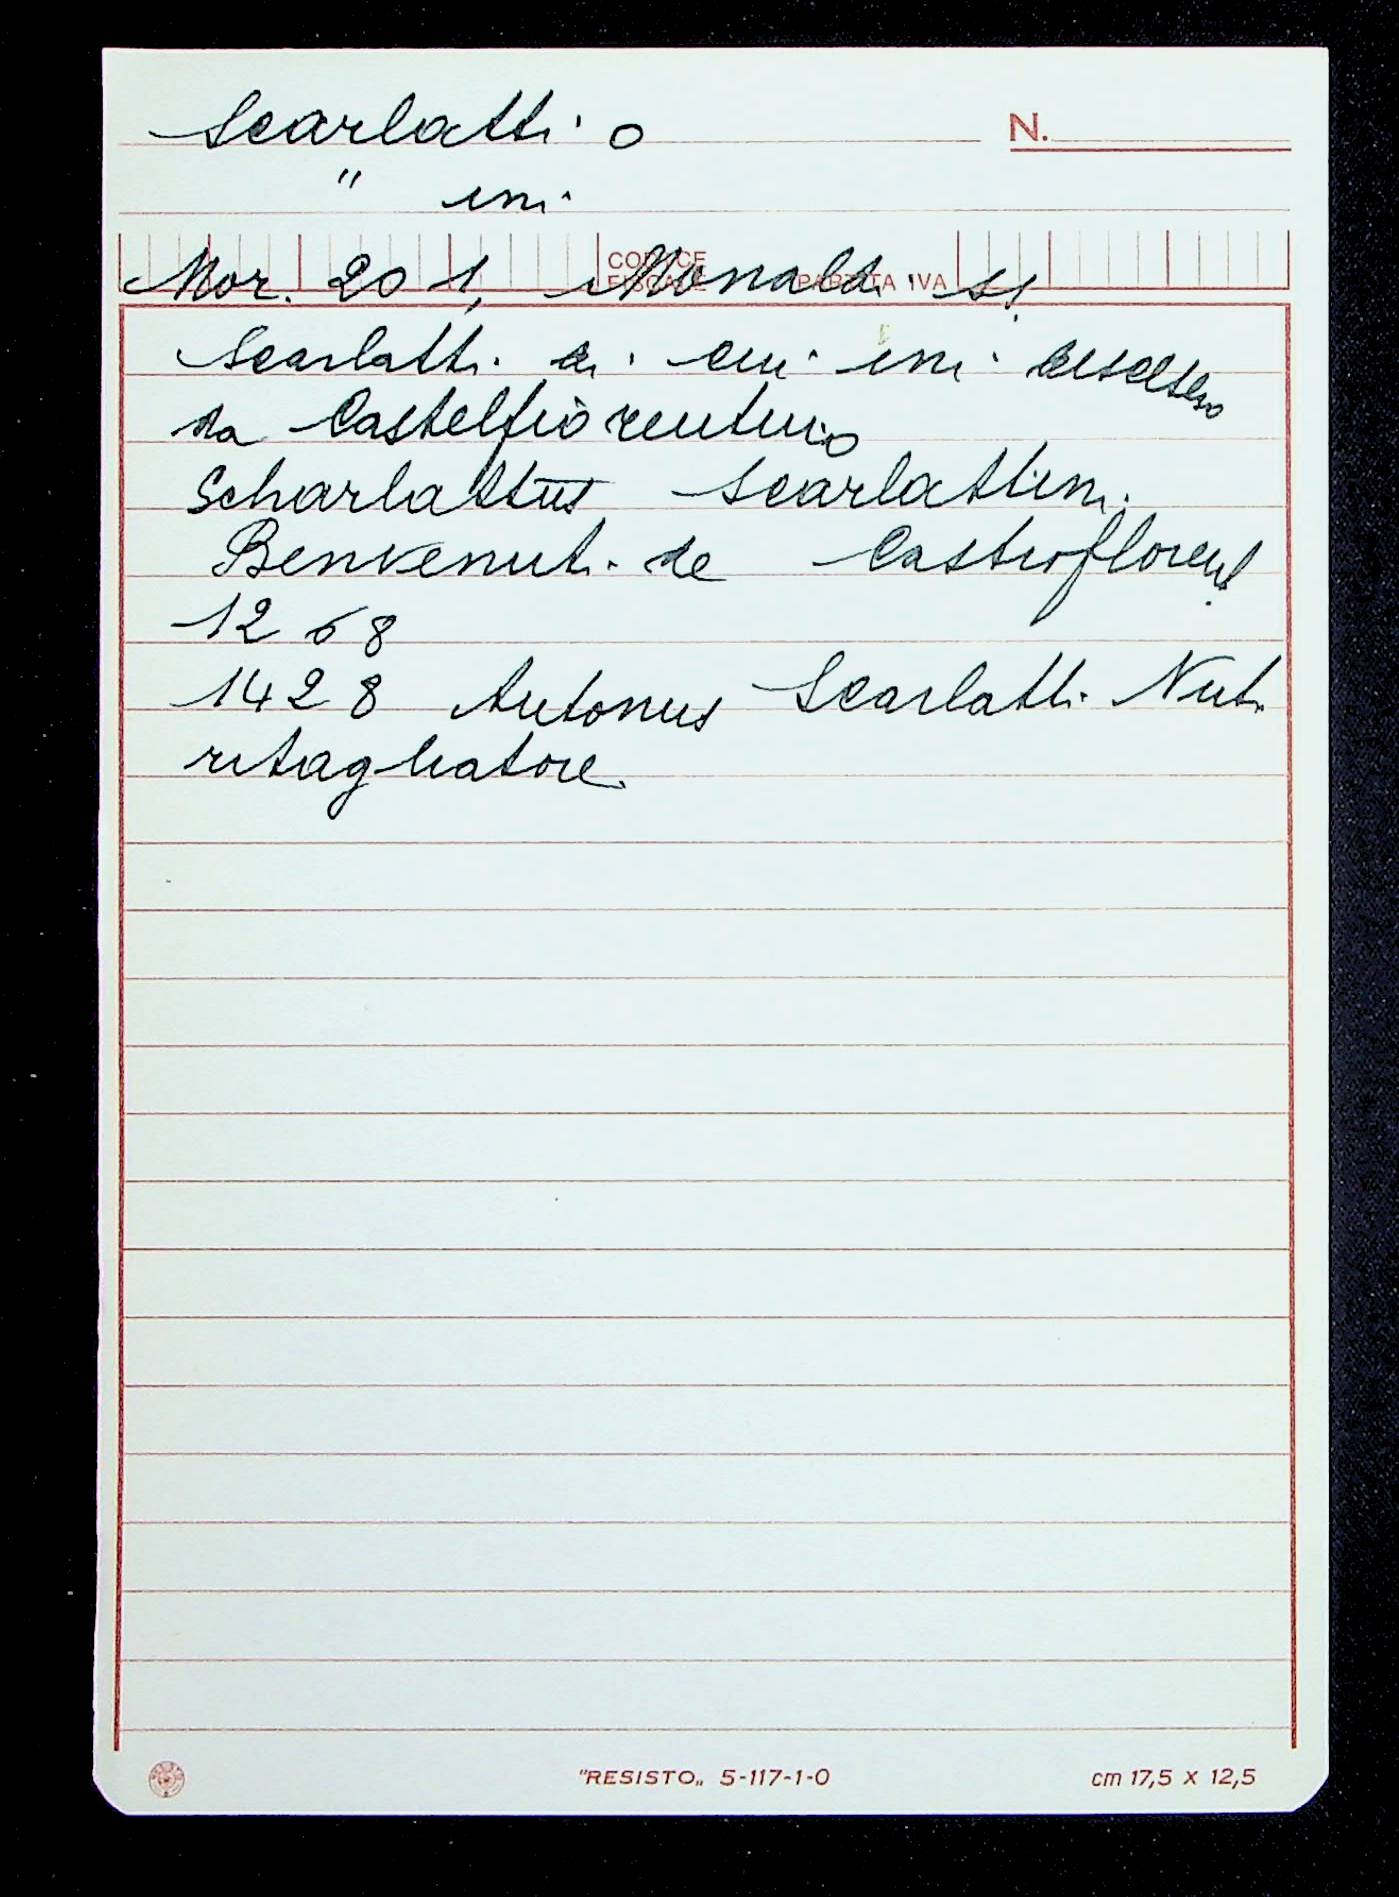 Scarlatti o
N.
" ini
CODICE FISCALE PARTITA IVA
Mor. 201, Monaldi
Scarlatti di cui ini
da Castelfiorentino
Scharlattus Scarlattini
Benvenuti de Castroflorent.
1268
1428 Antonius Scarlatti Nuti
ritagliatore.
"RESISTO„ 5-117-1-0
cm 17,5 x 12,5